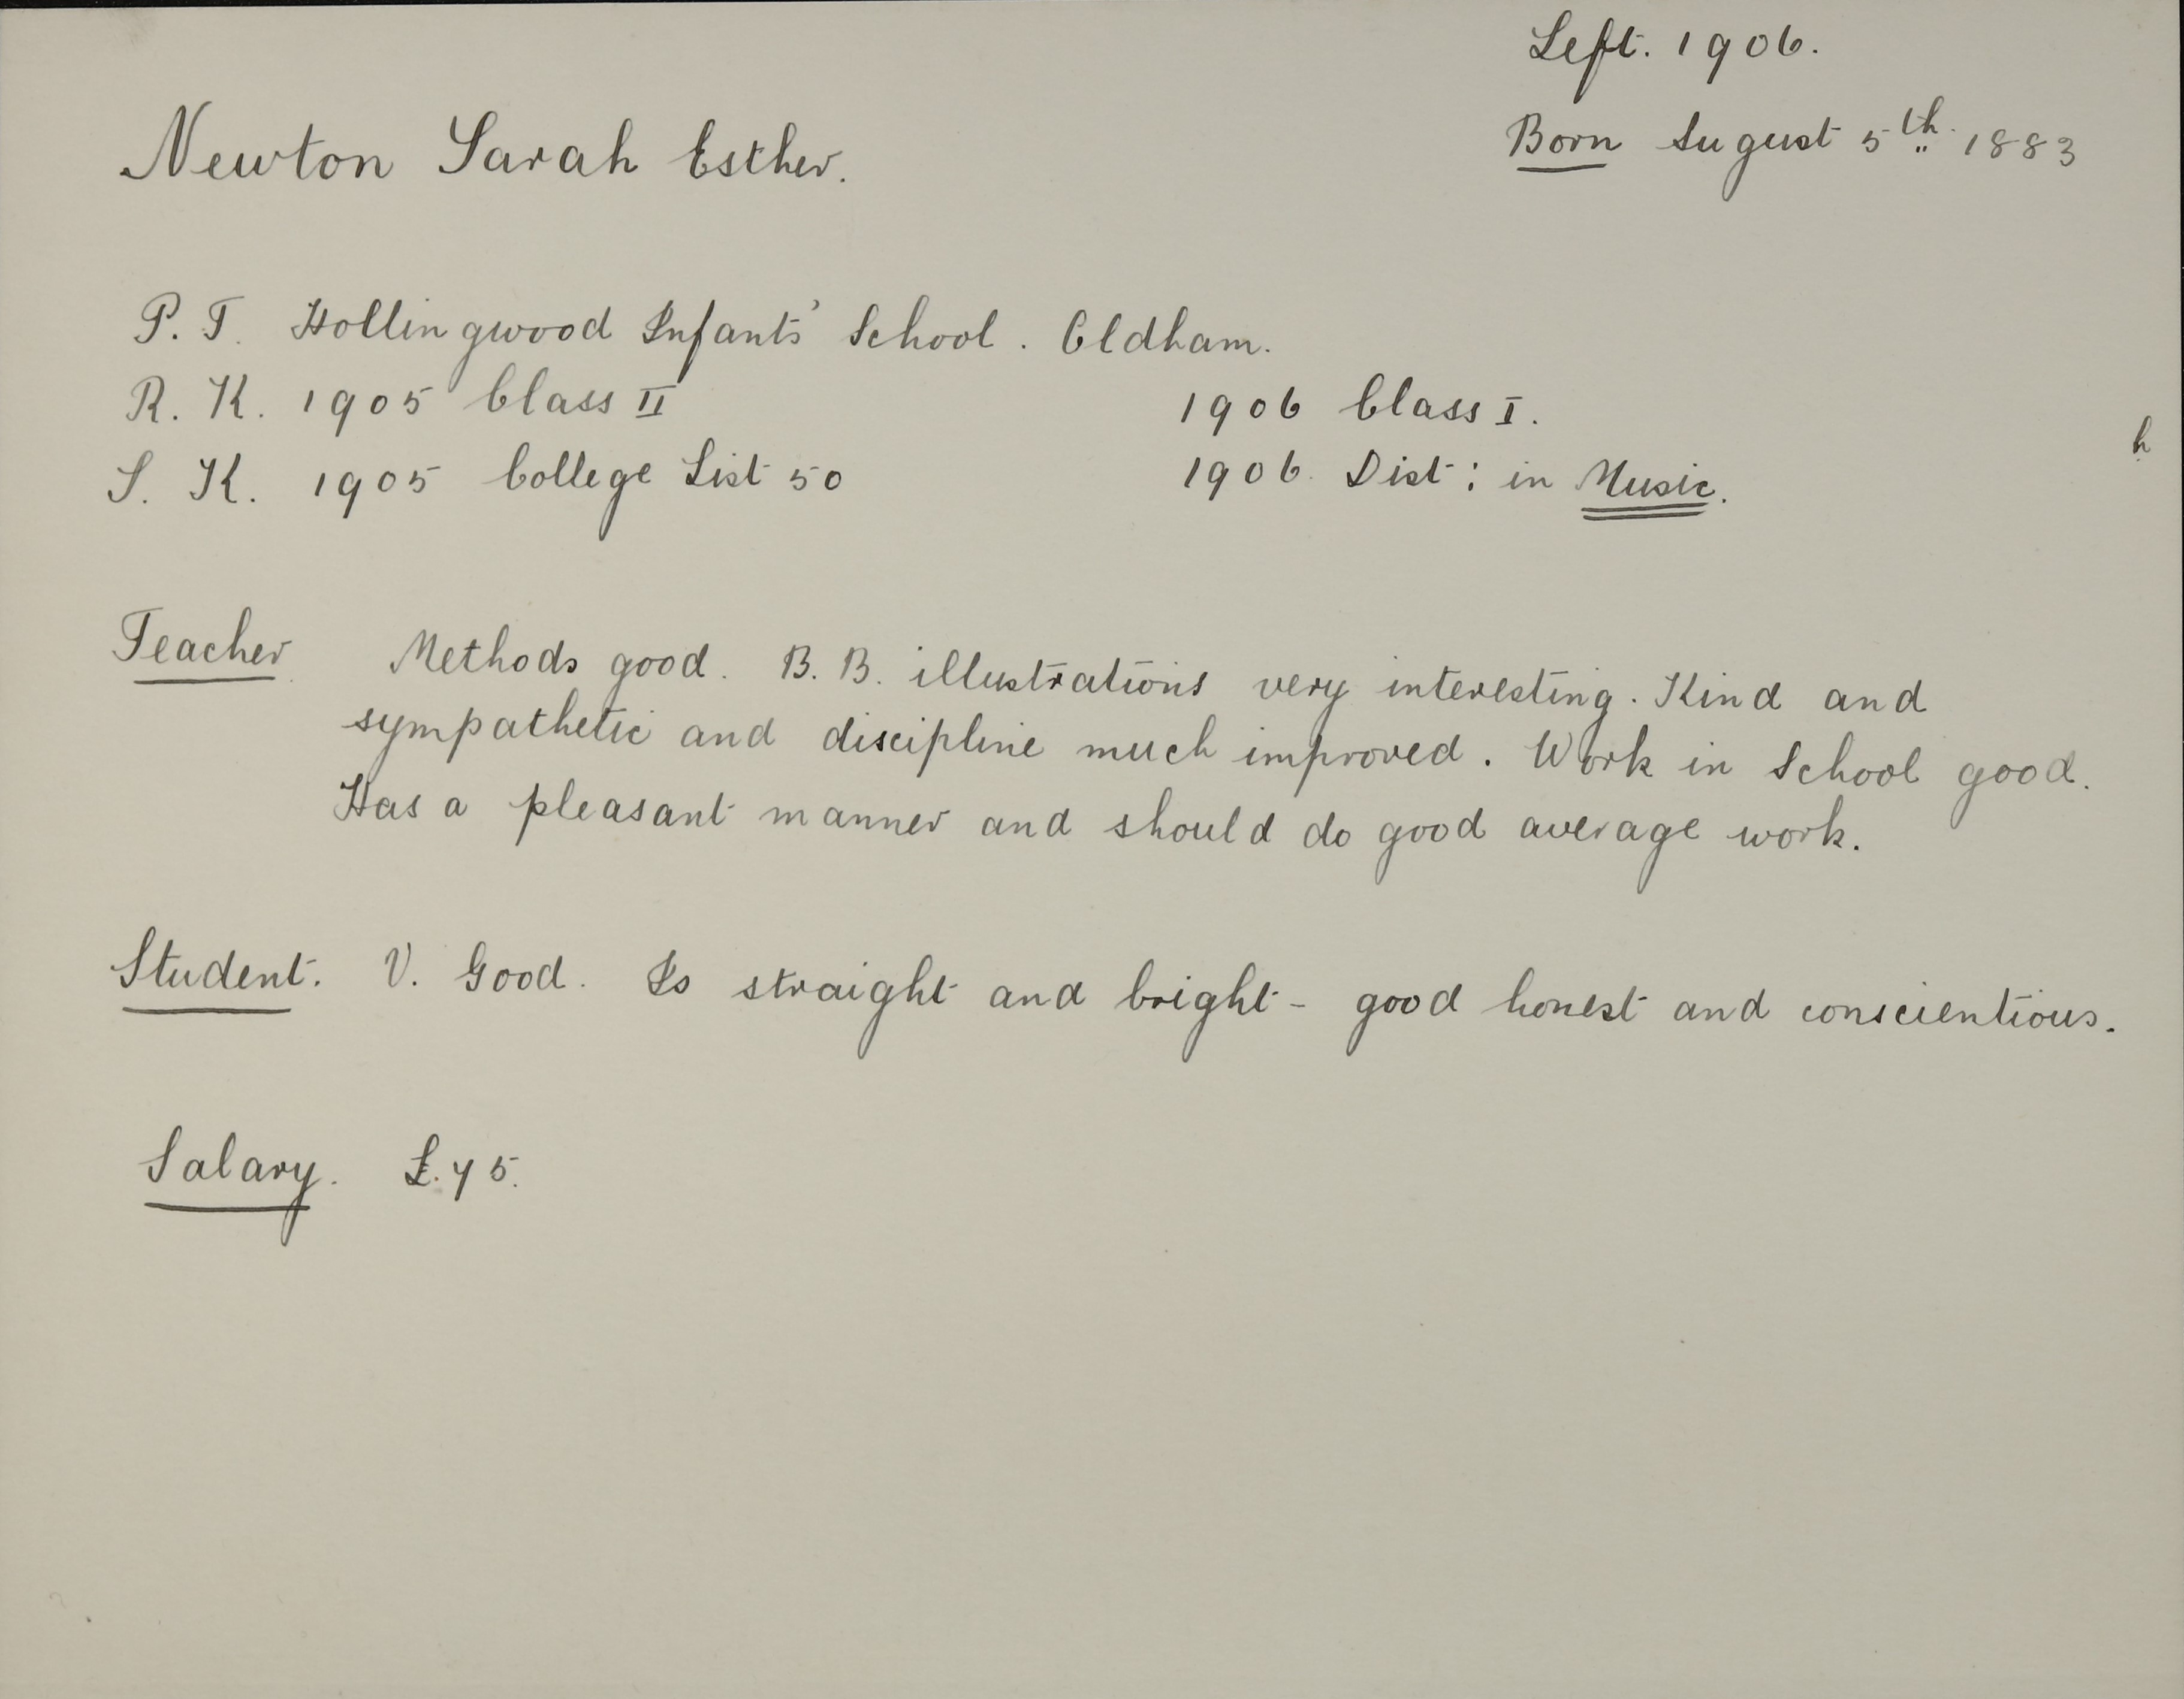 Left. 1906.
Newton Sarah Esther.
Born August 5th 1883
P. T. Hollingwood Infants' School. Oldham.
R. K. 1905 Class II 1906 Class I.
S. K. 1905 College List 50 1906. Dist: in Music.
h
Teacher Methods good. B. B. illustrations very interesting. Kind and
sympathetic and discipline much improved. Work in School good.
Has a pleasant manner and should do good average work.
Student. V. Good. Is straight and bright - good honest and conscientious.
Salary. £.75.